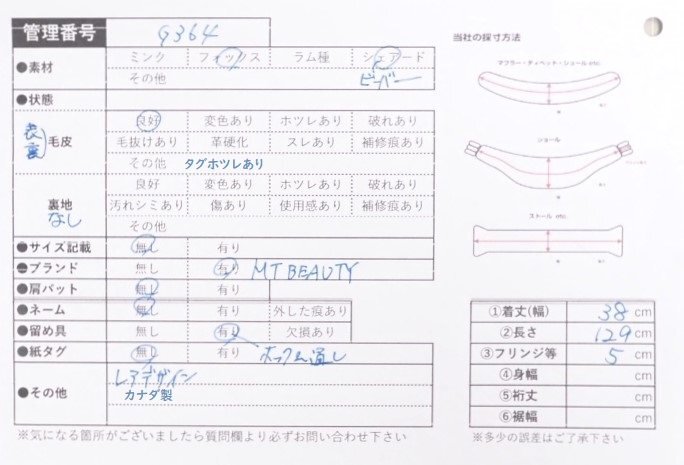 管理番号 G364
当社の採寸方法
●素材 ミンク フォックス ラム種 シェアード
その他 ビーバー
マフラー・ティペット・ショール etc.
●状態
表裏 毛皮 良好 変色あり ホツレあり 破れあり
毛抜けあり 革硬化 スレあり 補修痕あり
その他 タグホツレあり
ショール
裏地 なし 良好 変色あり ホツレあり 破れあり
汚れシミあり 傷あり 使用感あり 補修痕あり
その他
ストール etc.
●サイズ記載 無し 有り
●ブランド 無し 有り MT BEAUTY
●肩パット 無し 有り
●ネーム 無し 有り 外した痕あり
●留め具 無し 有り 欠損あり
●紙タグ 無し 有り ホック 通し
●その他 レアデザイン
カナダ製
①着丈(幅) 38 cm
②長さ 129 cm
③フリンジ等 5 cm
④身幅 cm
⑤裄丈 cm
⑥裾幅 cm
※気になる箇所がございましたら質問欄より必ずお問い合わせ下さい
※多少の誤差はご了承下さい